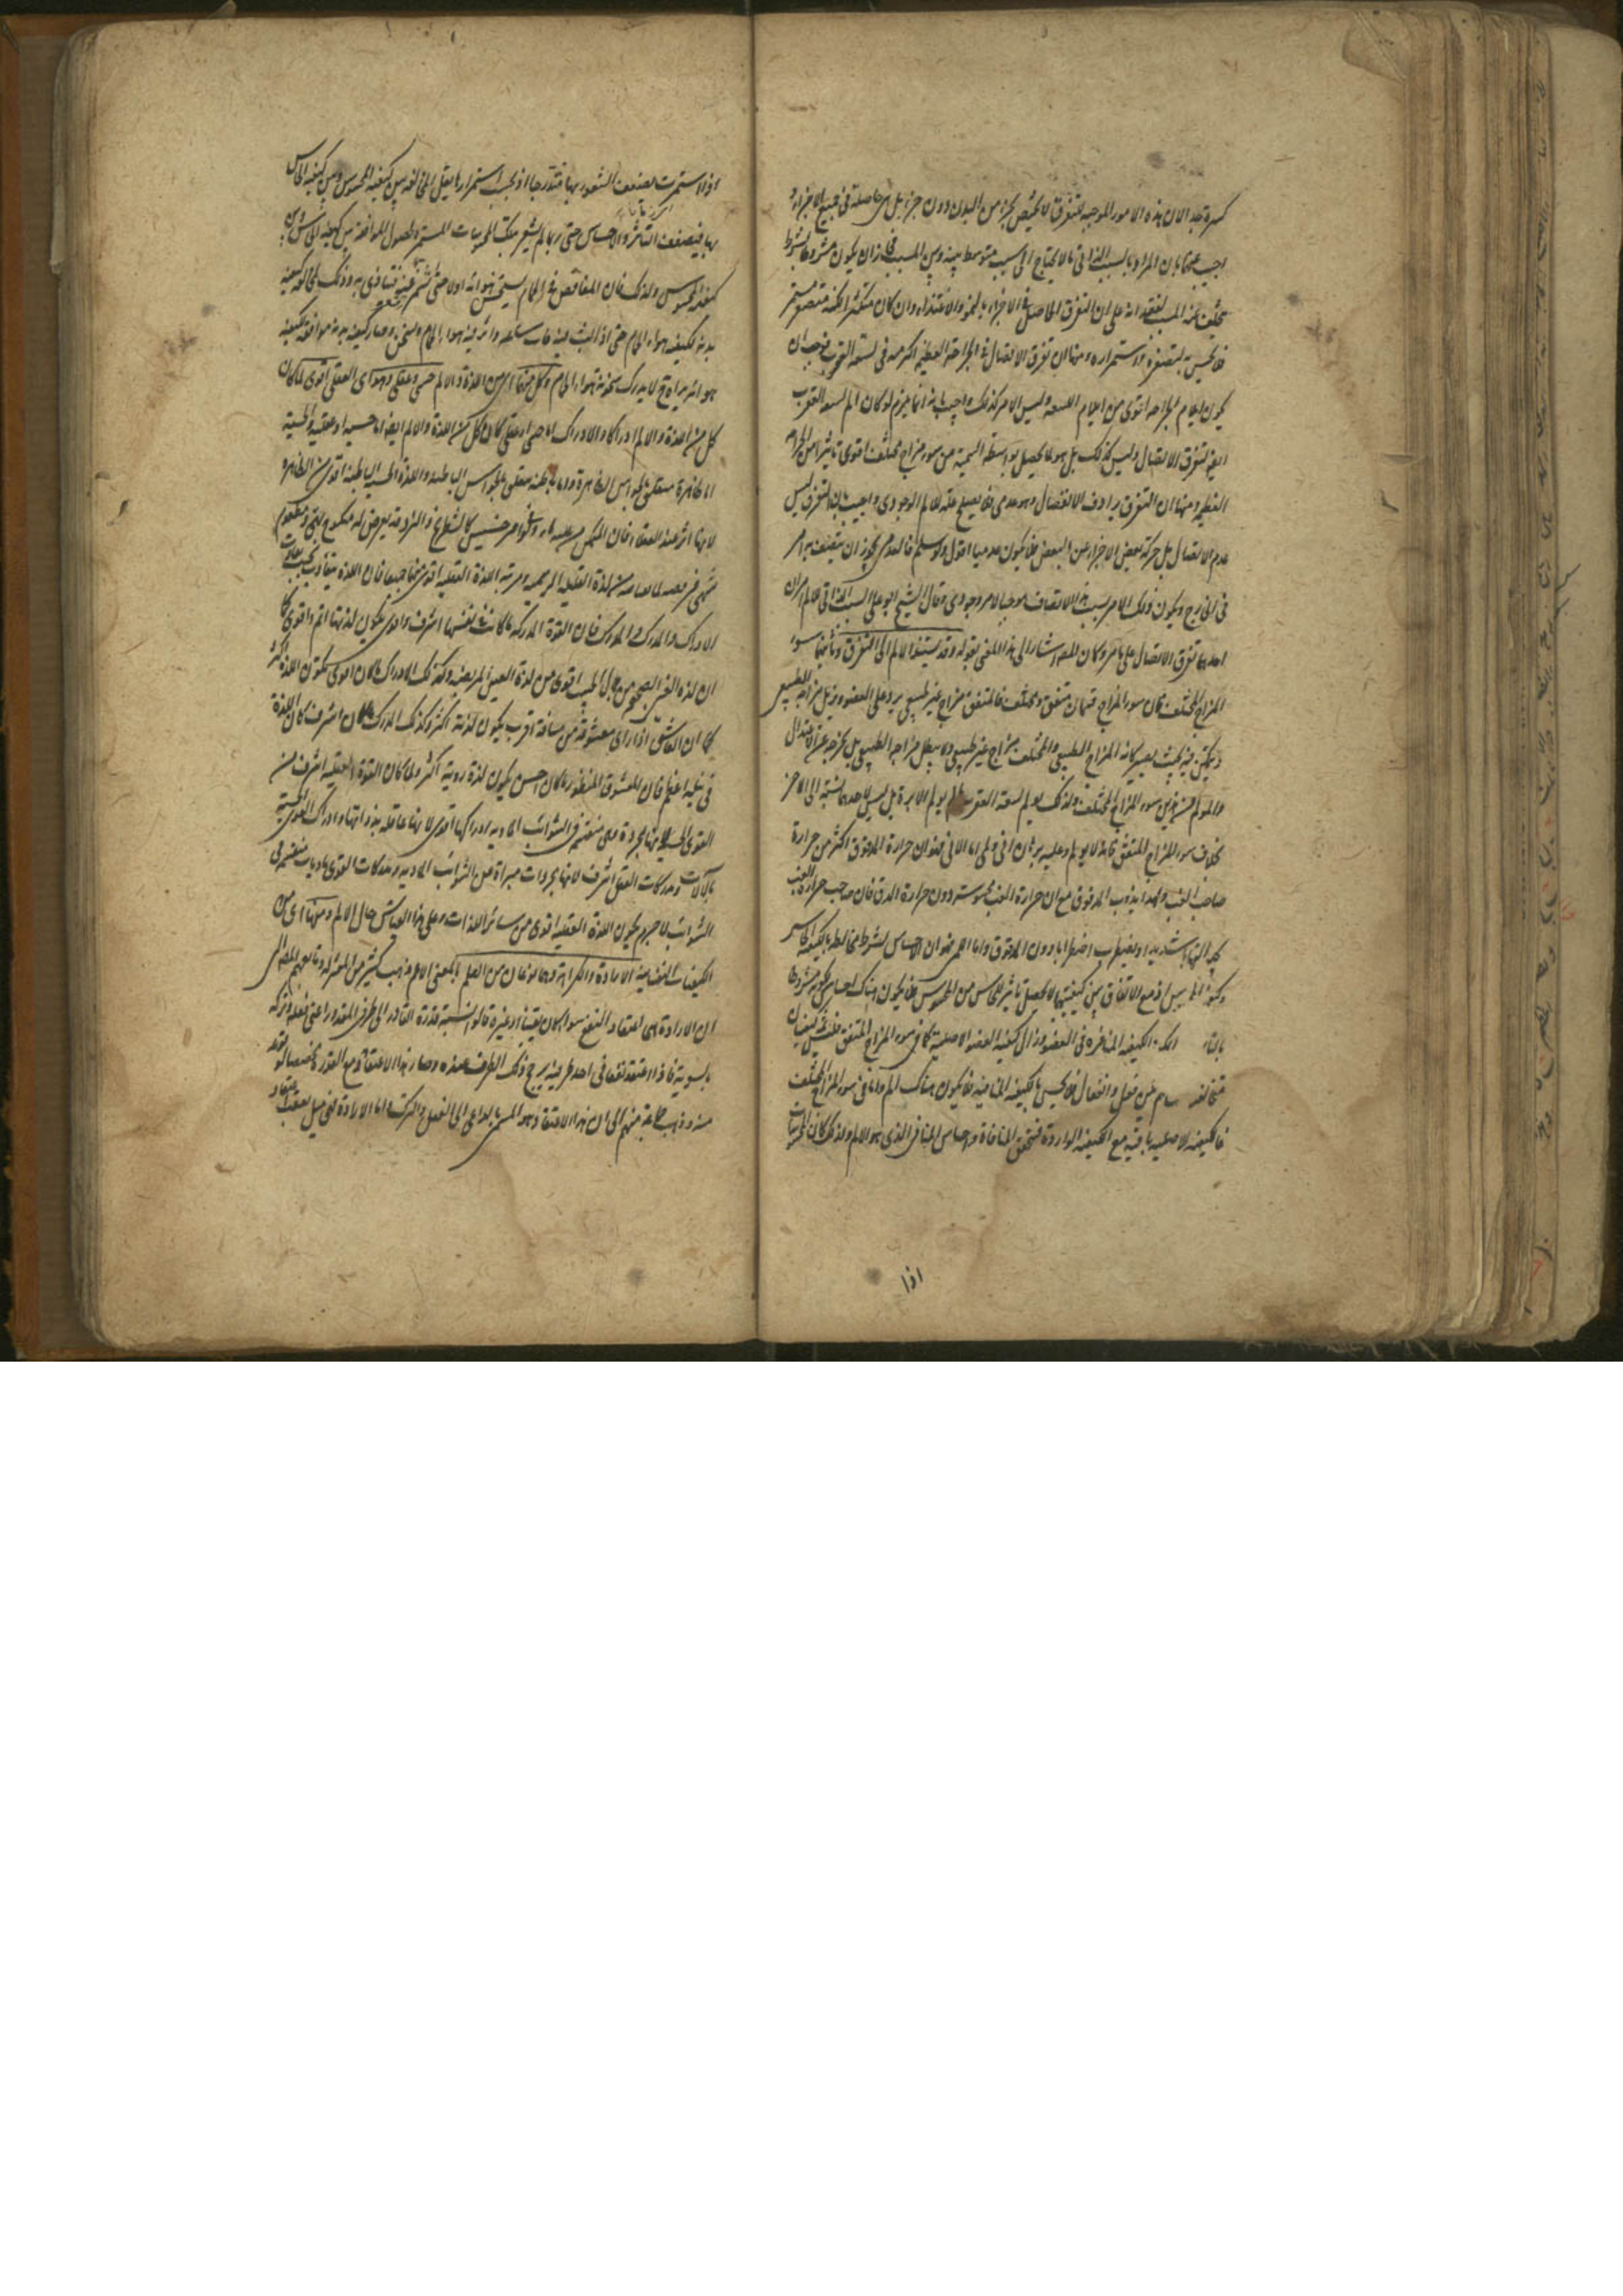 كثيرة جدا لان هذه الامور الموجبة للتفرق لا تختص بجزء من البدن دون جزء بل هى حاصلة فى جميع الاجزاء
اجيب عنها بان المراد بالسبب الذاتى ما لا يحتاج الى سبب متوسط بينه وبين المسبب فجاز ان يكون مشروطا بشرط
يتخلف عنه المسبب لفقدانه على ان التفرق الحاصل فى الاجزاء بالنمو والاغتذاء وان كان متكثرا لكنه متصغر مستمر
فلا يحس به لتصغره واستمراره ومنها ان تفرق الاتصال فى الجراحة العظيمة اكثر منه فى لسعة العقرب فوجب ان
يكون ايلام الجراحة اقوى من ايلام اللسعة وليس الامر كذلك واجيب بانه انما يلزم لو كان الم لسعة العقرب
ايضا لتفرق الاتصال وليس كذلك بل هو لما يحصل بواسطة السمية من سوء مزاج مختلف اقوى تاثيرا من الجراحة
العظيمة ومنها ان التفرق يرادف الانفصال وهو عدمى فلا يصلح علة للالم الوجودى واجيب بان التفرق ليس
عدم الاتصال بل حركة بعض الاجزاء عن البعض فلا يكون عدميا اقول ولو سلم فالعدمى يجوز ان يتصف به امر
فى الخارج ويكون ذلك الامر بسبب هذا الاتصاف موجبا لامر وجودى وقال الشيخ ابو على السبب الذاتى للالم امران
احدهما تفرق الاتصال على ما مر وكان المصنف اشار الى هذا المعنى بقوله وقد يستند الالم الى التفرق وثانيهما سوء
المزاج المختلف فان سوء المزاج قسمان متفق ومختلف فالمتفق مزاج غير طبيعى يرد على العضو ويزيل مزاجه الطبيعى
ويتمكن فيه بحيث يصير كانه المزاج الطبيعى والمختلف مزاج غير طبيعى ولا يبطل مزاجه الطبيعى بل يخرجه عن الاعتدال
والمولم من هذين سوء المزاج المختلف ولذلك يولم لسعة العقرب ما لم يولم الابرة بل ليس لاحدهما نسبة الى الاخر
بخلاف سوء المزاج المتفق فانه لا يولم وعليه برهان انى ولمى اما الانى فهو ان حرارة المدقوق اكثر من حرارة
صاحب الغب ولهذا يذوب المدقوق مع ان حرارة الغب محسوسة دون حرارة الدق فان صاحب حرارة الغب
يجد التهابا شديدا ويضطرب اضطرابا دون المدقوق واما اللمى فهو ان الاحساس شرطه مخالطة ما لكيفية الحاس
وكيفية المحسوس اذ مع الاتفاق بين كيفيتيهما لا يحصل تاثير للحاس من المحسوس فلا يكون هناك احساس لكونه مشروطا
بالتاثر الكيفية المنافرة فى العضو وزال كيفية العضو الاصلية كما فى سوء المزاج المتفق فليس ثمة كيفيتان
متخالفتان من فعل وانفعال فلا يحس بالكيفية المنافية فلا يكون هناك الم واما فى سوء المزاج المختلف
فالكيفية الاصلية باقية مع الكيفية الواردة فتحقق المنافاة واحساس المنافى الذى هو الالم ولذلك كان المحسوسات
اذا
اذا استمرت يضعف الشعور بها متدرجا اذ بحسب استمرارها يقل المخالفة بين كيفية المحسوس وبين كيفية الحاس
بها فيضعف التاثر والاحساس حتى ربما لم يشعر بتلك المحسوسات المستمرة لحصول الموافقة بين كيفية الحاس وبين
كيفية المحسوس ولذلك فان المغافص فى الحمام يستسخن هواءه اولا حتى يشمئز عنه فيتاذى به وذلك لمخالفة كيفية
بدنه لكيفية هواء الحمام حتى اذا لبث فيه ساعة واثر فيه هواء الحمام وتسخن وصار كيفية بدنه موافقة لكيفية
هوائه يراه لا يدرك سخونة هواء الحمام وكل منهما اى من اللذة والالم حسى وعقلى وهو اى العقلى اقوى لما كان
كل من اللذة والالم ادراكا والادراك اما حسى او عقلى كان كل من اللذة والالم ايضا اما حسية او عقلية والحسية
اما ظاهرة متعلق بالحواس الظاهرة واما باطنة متعلق بالحواس الباطنة واللذة الحسية الباطنة اقوى من الظاهرة
لانها اثر عند العقلاء فان المتمكن من غلبة ما ولو فى امر خسيس كالشطرنج والنرد قد يعرض له منكوح بهى ومطعوم
شهى فيرفضه لما يعتاضه من لذة الغلبة الوهمية ومرتبة اللذة العقلية اقوى منها جميعا فان اللذة تتفاوت بحسب تفاوت
الادراك والمدرك والمدرك فان القوة المدركة ما كانت فى نفسها اشرف واقوى يكون لذتها اتم واقوى كما
ان لذة العين الصحيحة من جمال الحبيب اقوى من لذة العين المريضة وكذلك الادراك ما كان اقوى يكون اللذة اكثر
كما ان العاشق اذا راى معشوقه من مسافة اقرب يكون لذته اكثر وكذلك المدرك ما كان اشرف كان اللذة
فى نيله اعظم فان المعشوق المنظور ما كان احسن يكون لذة رويته اكثر ولما كان القوة العقلية اشرف من
القوى الحسية لانها مجردة وهى منغمسة فى الشوائب المادية وادراكها اقوى لانها عاقلة بذواتها وادراك القوى الحسية
بالآلات ومدركات العقل اشرف لانها مجردات مبراة من الشوائب المادية ومدركات القوى ماديات منغمسة فى
الشوائب لا جرم يكون اللذة العقلية اقوى من سائر اللذات وعلى هذا القياس حال الالم ومنها اى من
الكيفيات النفسانية الارادة والكراهة وهما نوعان من العلم بالمعنى الاعم ذهب كثير من المعتزلة وتابعهم المصنف الى
ان الارادة هى اعتقاد النفع سواء كان يقينا او غيره قالوا نسبة قدرة القادر الى طرفى المقدور اعنى فعله وتركه
بالسوية فاذا اعتقد نفعا فى احد طرفيه يرجح ذلك الطرف عنده وصار هذا الاعتقاد مع القدرة مخصصا لوقوعه
منه وذهب طائفة منهم الى ان هذا الاعتقاد هو المسمى بالداعى الى الفعل والترك واما الارادة فهى ميل يعقب اعتقاد